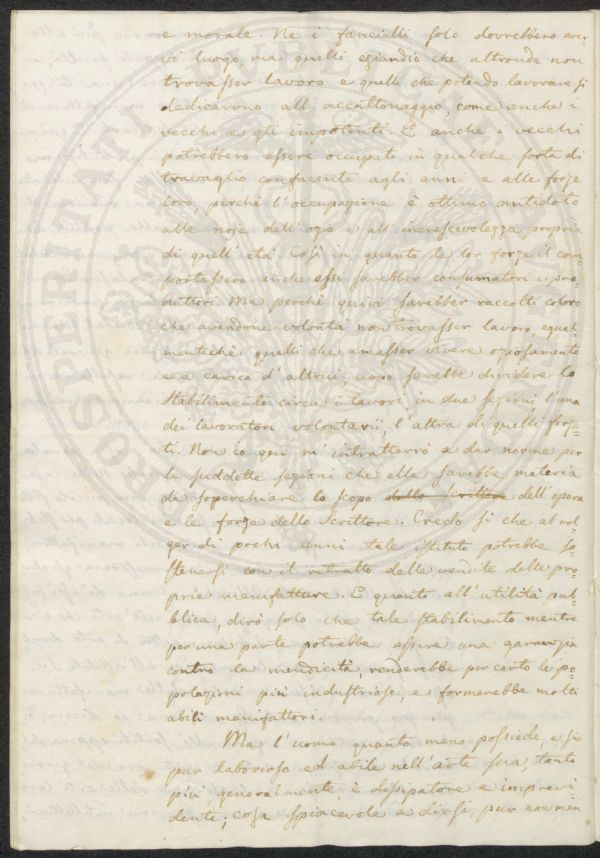 e morale. Ne i fanciulli solo dovrebbero aver-
vi luogo, ma quelli eziandio che altronde non
trovasser lavoro e quelli che potendo lavorare si
dedicarono all' accattonaggio, come anche i
vecchi e gli impotenti. E anche i vecchi
potrebbero essere occupati in qualche sorta di
travaglio confacente agli anni e alle forze
loro, perchè l'occupazione è ottimo antidoto
alle noje dell'ozio e all' increscevolezza propria
di quell' età. Così in quanto le lor forze il com-
portassero anche essi sarebber consumatori e pro-
duttori. Ma perchè quivi sarebber raccolti coloro
che avendone volontà non trovasser lavoro equal-
mentechè quelli che amasser vivere oziosamente
e a carico d' altrui, uopo sarebbe dividere lo
stabilimento circa i lavori in due sezioni l'una
dei lavoratori volontarii, l'altra di quelli forza-
ti. Non io qui m' intratterrò a dar norme per
le suddette sezioni che ella sarebbe materia
da soperchiare lo scopo dello scrittore dell' opera
e le forze dello Scrittore. Credo si che al vol-
ger di pochi anni tale istituto potrebbe so-
stenersi con il retratto delle vendite delle pro-
prie manufatture. E quanto all' utilità pub-
blica, dirò solo che tale stabilimento mentre
per una parte potrebbe essere una garanzia
contro la mendicità, renderebbe per certo le po-
polazioni più industriose, e formerebbe molti
abili manifattori.
Ma l'uomo quanto meno possiede, e sia
pur laborioso ed abile nell'arte sua, tanto
più, generalmente è dissipatore e imprevi-
dente; cosa spiacevole a dirsi, pur non men
PROSPERITATI PUBLICAE